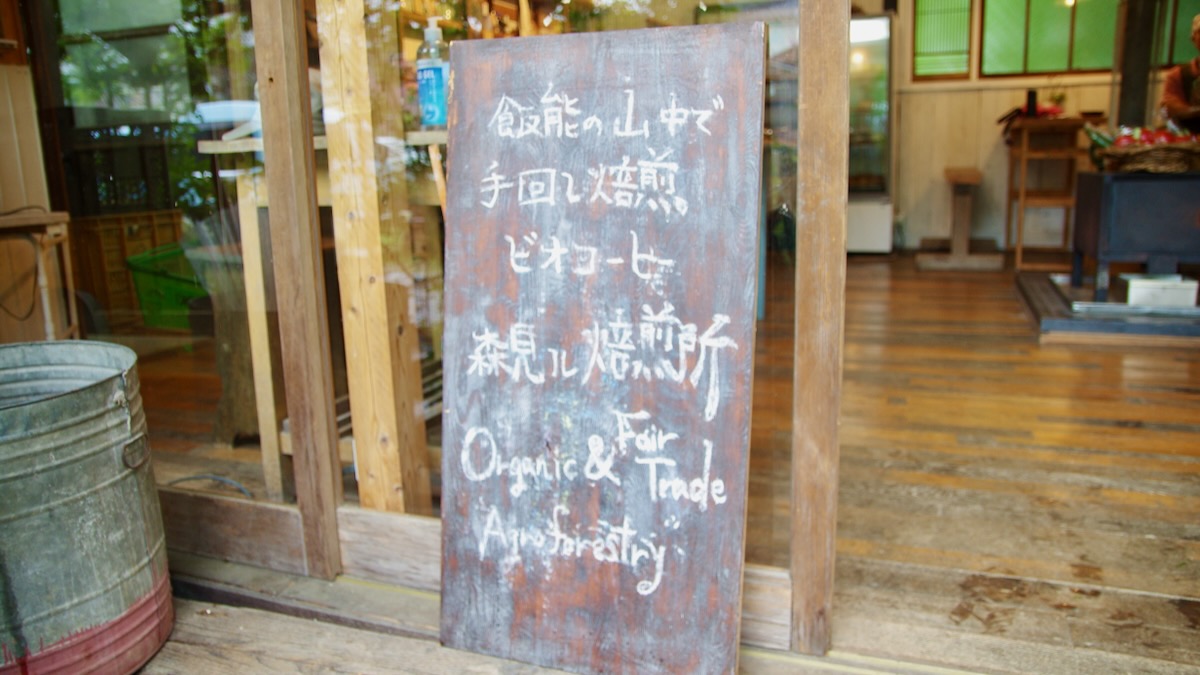 飯能の山中で
手回し焙煎。
ビオコーヒー
森見ル焙煎所
Organic & Fair Trade
Agroforestry